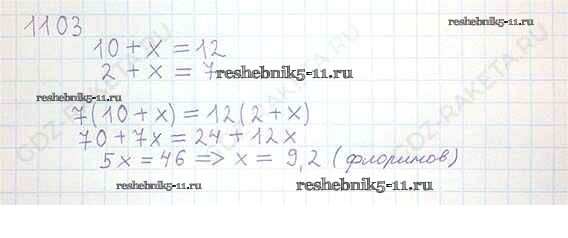 1103
reshebnik5-11.ru
10 + x = 12
2 + x = 7
reshebnik5-11.ru
reshebnik5-11.ru
7(10 + x) = 12(2 + x)
70 + 7x = 24 + 12x
5x = 46 => x = 9,2 (флоринов)
reshebnik5-11.ru
reshebnik5-11.ru
GDZ-RAKETA.RU
GDZ-RAKETA.RU